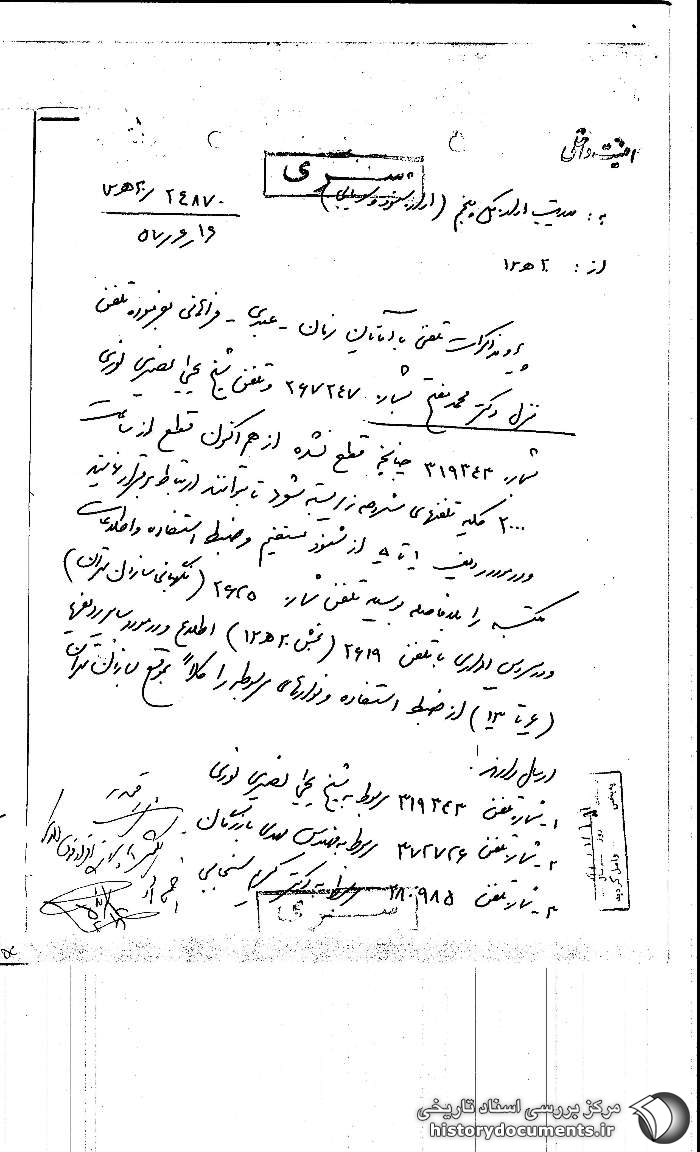 امنیت داخلی
سری
به: مدیریت اداره کل پنجم (اداره شنود و
۲۴۸۷۰ / ۲۰ ه ۱۲
از: ۲۰ ه ۱۲
پیرو مذاکرات تلفنی با آقایان زمان - عبدی - فراهانی تلفن
منزل دکتر محمد مفتح شماره ۲۶۷۲۴۷ و تلفن شیخ یحیی نصیری نوری
شماره ۳۱۹۳۴۳ چنانچه قطع نشده از هم اکنون قطع از ساعت
۲۰۰۰ کلیه تلفنهای مشروحه زیر بسته شود تا نتوانند ارتباط برقرار نمایند
و در مورد ردیف ۱ تا ۵ از شنود مستقیم و ضبط استفاده و اطلاعات
مکتسبه را بلافاصله بوسیله تلفن شماره ۲۶۲۵ (نگهبانی سازمان تهران)
و در سرویس اداری با تلفن ۲۶۱۹ (بخش ۲۰ ه ۱۲) اطلاع و در مورد سایر ردیفها
(۶ تا ۱۳) از ضبط استفاده و نوارهای مربوطه را کلاً بموقع به سازمان تهران
ارسال دارند.
۱- شماره تلفن ۳۱۹۳۴۳ مربوط به شیخ یحیی نصیری نوری
۲- شماره تلفن ۳۷۲۷۲۶ مربوط به مهندس مهدی بازرگان
۳- شماره تلفن ۲۸۰۹۸۵ مربوط به دکتر کریم سنجابی
سری
مرکز بررسی اسناد تاریخی
historydocuments.ir